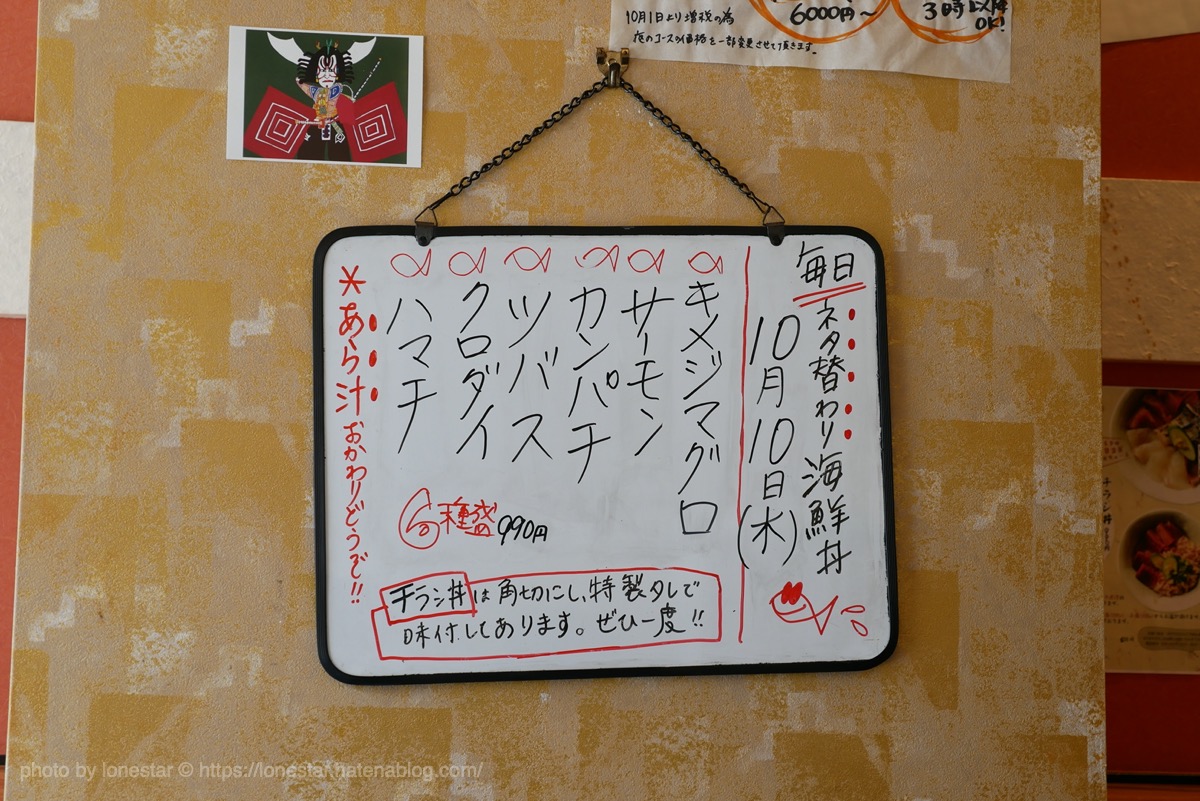 6000円〜
3時以降
OK!
10月1日より増税の為
夜のコースの価格を一部変更させて頂きます。
毎日
ネタ替わり海鮮丼
10月10日(水)
キメジマグロ
サーモン
カンパチ
ツバス
クロダイ
ハマチ
6種盛 990円
*あら汁おかわりどうぞ!!
チラシ丼は角切にし、特製タレで
味付してあります。ぜひ一度!!
チラシ丼
photo by lonestar © https://lonestar.hatenablog.com/